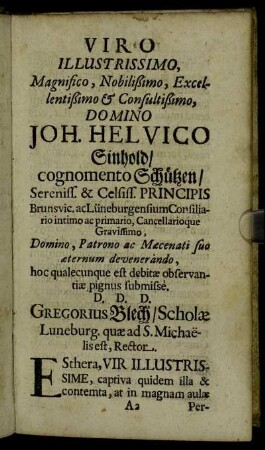 VIRO
ILLUSTRISSIMO,
Magnifico, Nobilißimo, Excel-
lentißimo & Consultißimo,
DOMINO
JOH. HELVICO
Sinhold/
cognomento Schützen/
Sereniss. & Celsiss. PRINCIPIS
Brunsvic. ac Lüneburgensium Consilia-
rio intimo ac primario, Cancellarioque
Gravissimo,
Domino, Patrono ac Mæcenati suo
æternum devenerando,
hoc qualecunque est debitæ observan-
tiæ pignus submissè.
D. D. D.
GREGORIUS Blech/ Scholæ
Luneburg. quæ ad S. Michaë-
lis est, Rector.
ESthera, VIR ILLUSTRIS-
SIME, captiva quidem illa &
contemta, at in magnam aulæ
A2 Per-